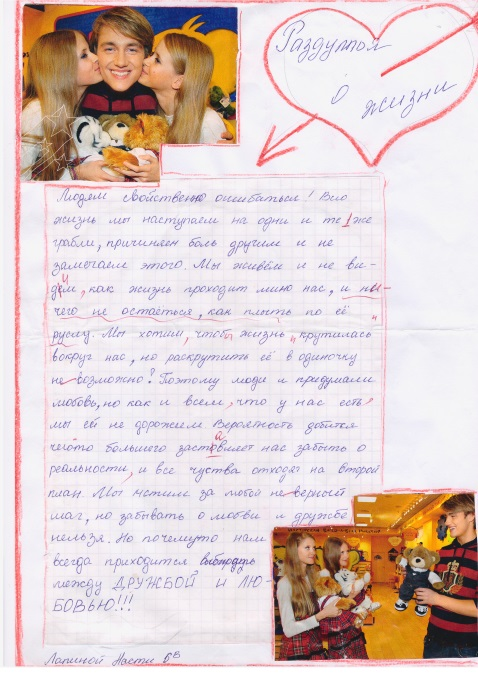 Раздумья
о
жизни
Людям свойственно ошибаться! Всю
жизнь мы наступаем на одни и те же
грабли, причиняем боль другим и не
замечаем этого. Мы живём и не ви-
дим, как жизнь проходит мимо нас, и ни-
чего не остаёться, как плыть по её
руслу. Мы хотим, чтобы жизнь „крутилась"
вокруг нас, но раскрутить её в одиночку
не возможно! Поэтому люди и придумали
любовь, но как и всем, что у нас есть,
мы ей не дорожем. Вероятность добится
чегото большего заставляет нас забыть о
реальности, и все чуства отходят на второй
план. Мы мстим за любой не верный
шаг, но забывать о любви и дружбе
нельзя. Но почемуто нам
всегда приходится выбирать
между ДРУЖБОЙ И ЛЮ-
БОВЬЮ!!!
Лапиной Насти 6 В